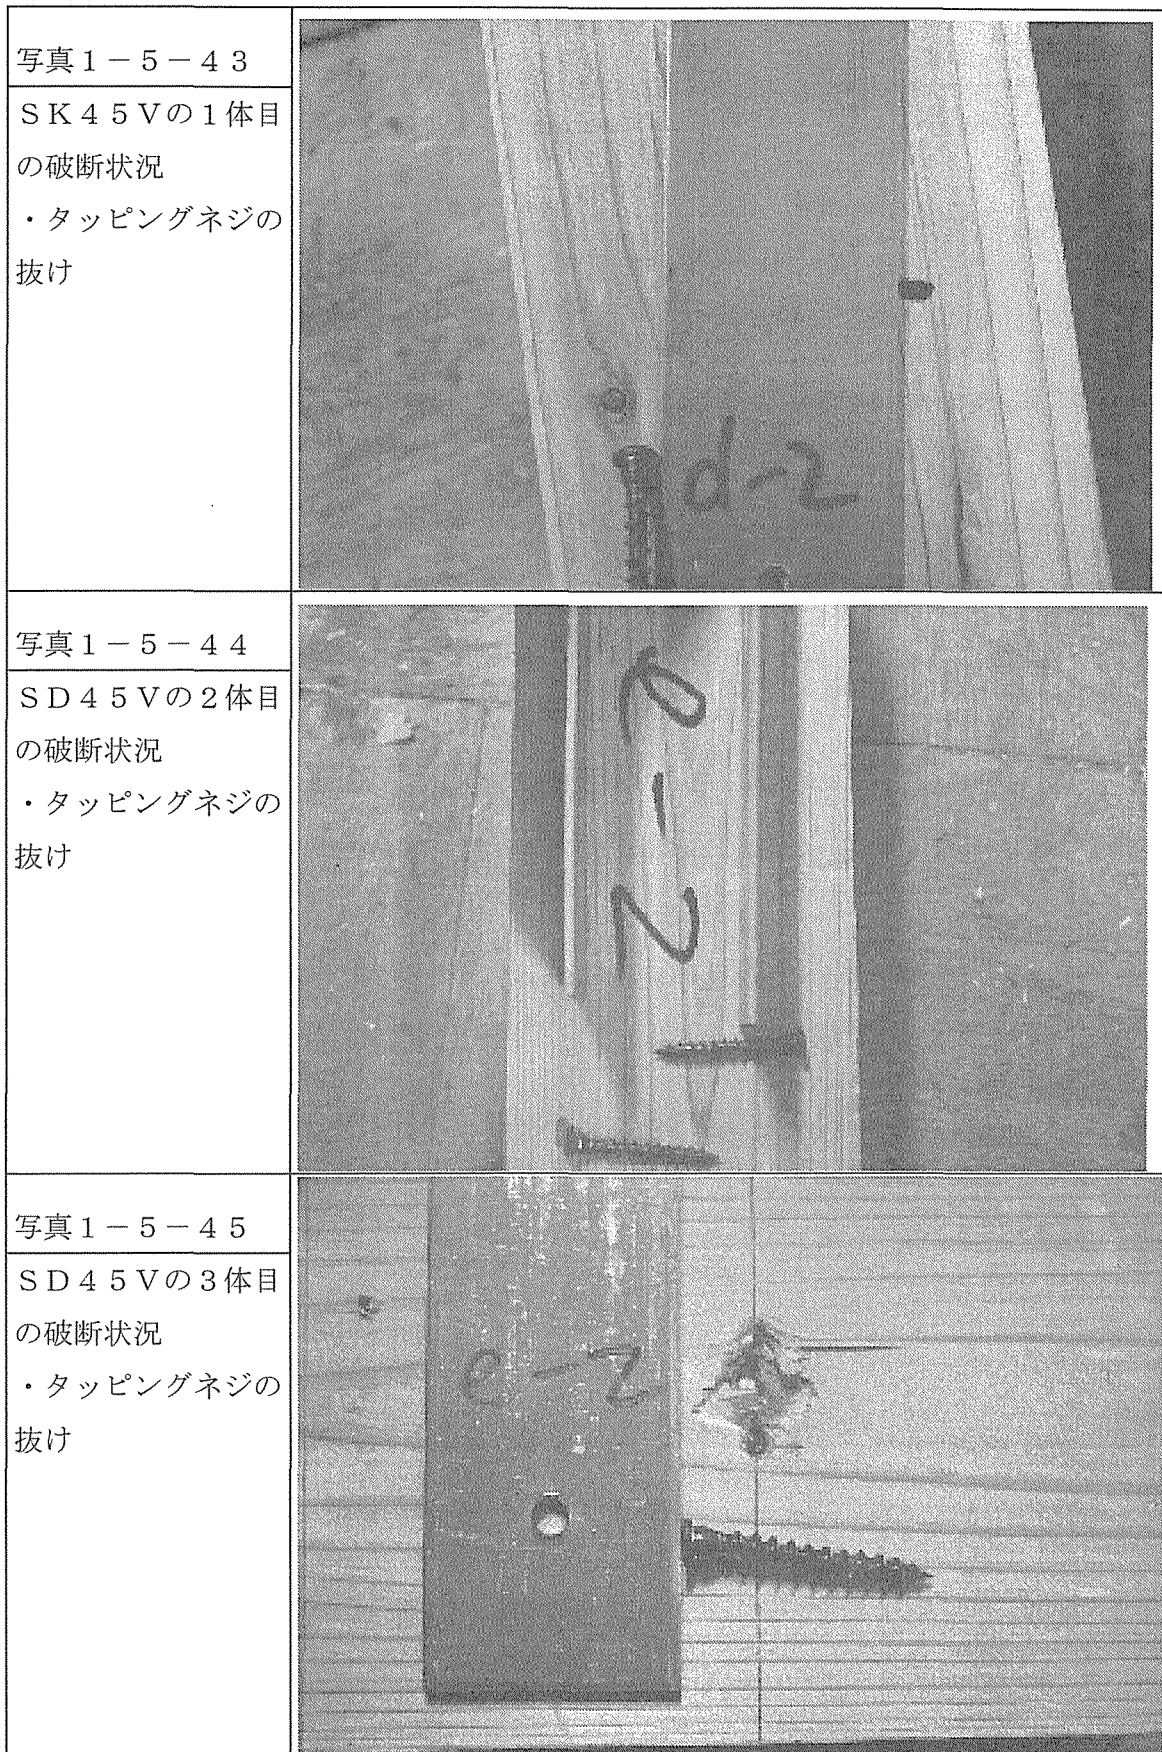 写真１－５－４３
ＳＫ４５Ｖの１体目
の破断状況
・タッピングネジの
抜け
d-2
写真１－５－４４
ＳＤ４５Ｖの２体目
の破断状況
・タッピングネジの
抜け
e-2
写真１－５－４５
ＳＤ４５Ｖの３体目
の破断状況
・タッピングネジの
抜け
e-2